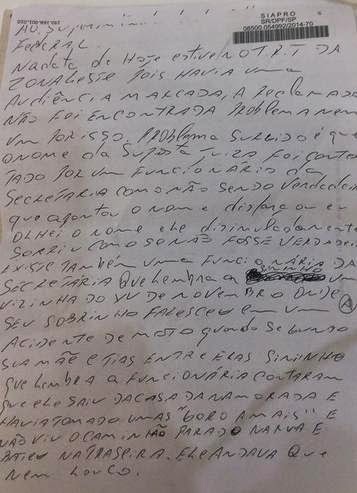 SIAPRO
SR/DPF/SP
08500.054992/2014-70
AO. Superintendente
Federal.
Na data de Hoje estive NO T.R.T DA
ZONA LESSE POIS HAVIA uma
AUDIÊNCIA MARCADA, A RECLAMADA
NÃO FOI ENCONTRADA PROBLEMA NEM
UM POR ISSO, PROBLEMA SURGIDO É que
O NOME da Suposta Juiza foi contes
TADO POR UM FUNCIONÁRIO da
SECRETARIA COMO NÃO SENDO Verdadeiro
que apontou o nome e disfarçou eu
OLHEI O NOME ele disimuladamente
SORRIU COMO SE NÃO FOSSE VERDADEI
EXISTE TAMBÉM UMA FUNCIONÁRIA DA
SECRETÁRIA Que lembra a SININHO
VIZINHA DO XV DE NOVEMBRO ONDE
SEU SOBRINHO FALESCEU em um
ACIDENTE DE MOTO quando SEGUNDO
SUA MÃE E TIAS ENTRE ELAS SININHO
que LEMBRA A FUNCIONÁRIA CONTARAM
que ele SAIU DA CASA DA NAMORADA E
HAVIA TOMADO UMAS "GORO A MAIS" E
NÃO VIU O CAMINHÃO PARADO NA RUA E
BATEU NA TRASEIRA. ELE ANDAVA Que
Nem LOUCO.